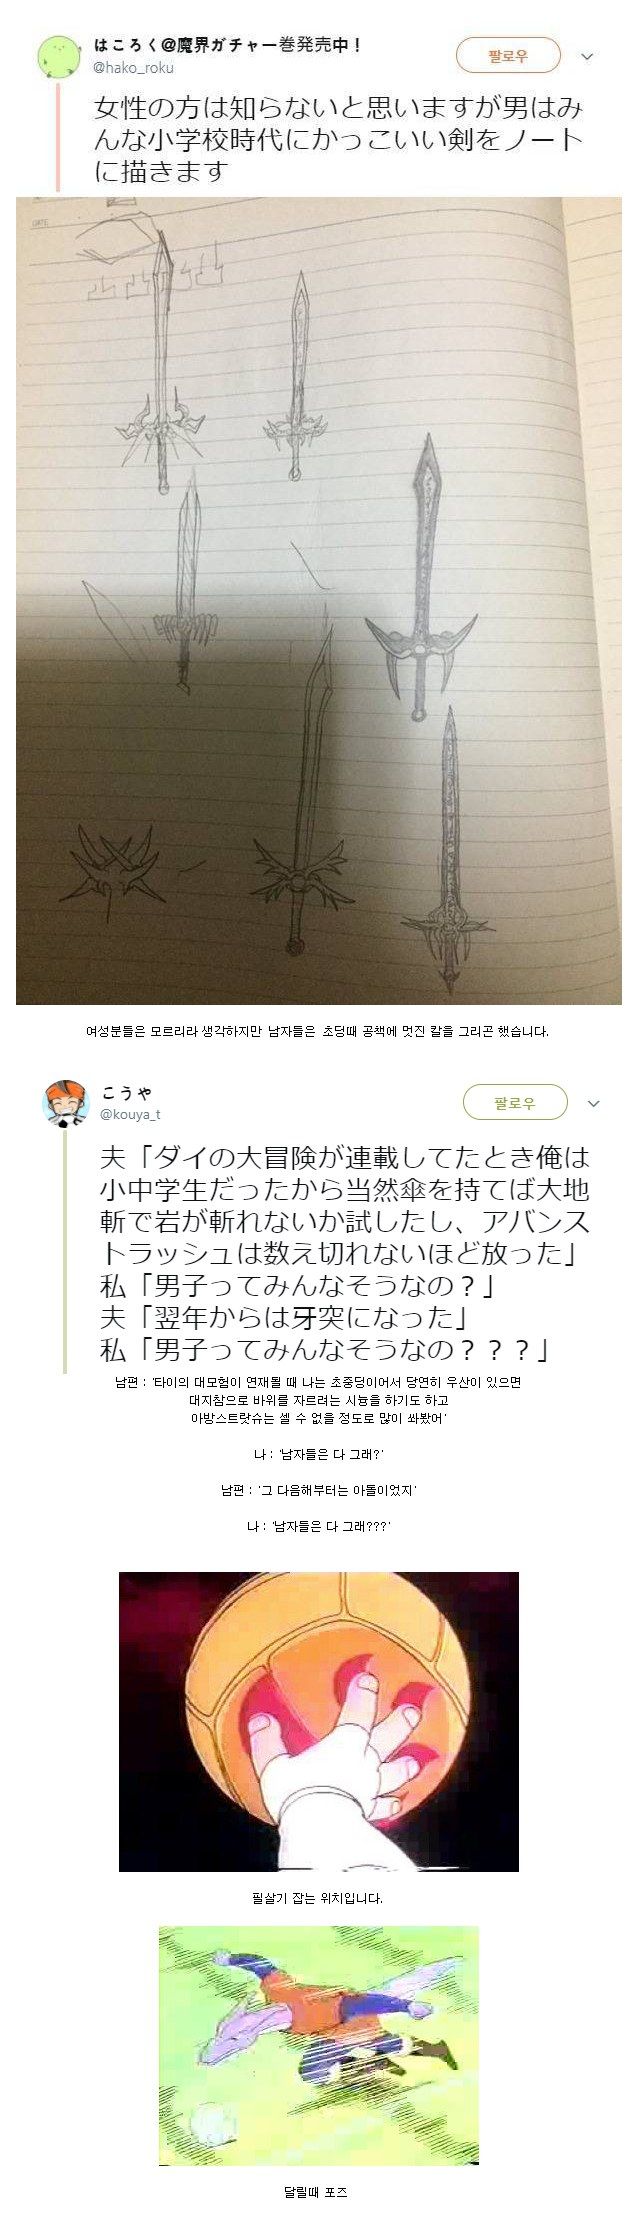 はころく@魔界ガチャー巻発売中！
@hako_roku
팔로우
女性の方は知らないと思いますが男はみ
んな小学校時代にかっこいい剣をノート
に描きます
DATE
여성분들은 모르리라 생각하지만 남자들은 초딩때 공책에 멋진 칼을 그리곤 했습니다.
こうや
@kouya_t
팔로우
夫「ダイの大冒険が連載してたとき俺は
小中学生だったから当然傘を持てば大地
斬で岩が斬れないか試したし、アバンス
トラッシュは数え切れないほど放った」
私「男子ってみんなそうなの？」
夫「翌年からは牙突になった」
私「男子ってみんなそうなの？？？」
남편 : '타이의 대모험이 연재될 때 나는 초중딩이어서 당연히 우산이 있으면
대지참으로 바위를 자르려는 시늉을 하기도 하고
아방스트랏슈는 셀 수 없을 정도로 많이 쏴봤어'
나 : '남자들은 다 그래?'
남편 : '그 다음해부터는 아돌이었지'
나 : '남자들은 다 그래???'
필살기 잡는 위치입니다.
달릴때 포즈